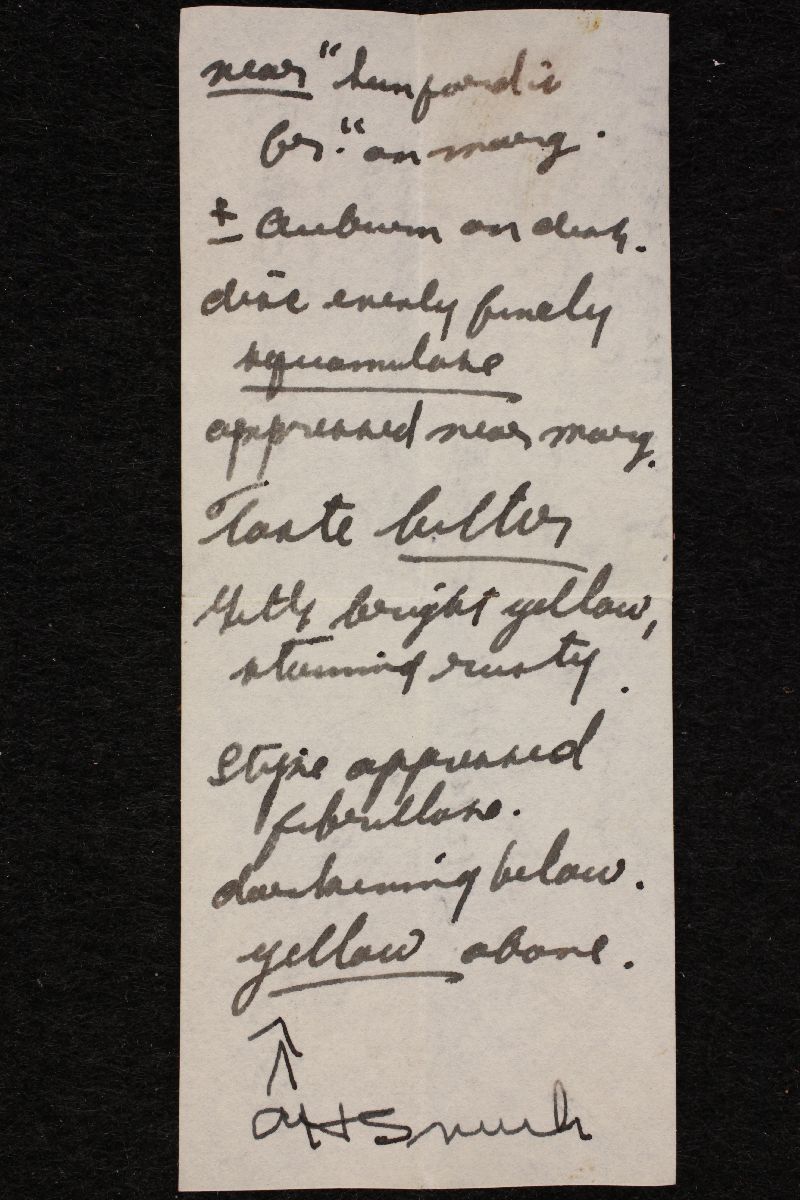 near "
br." on marg.
± Auburn on disk.
disc evenly finely
squamulose
appressed near marg.
Taste bitter
Gills bright yellow,
staining rusty.
Stipe appressed
fibrillose.
darkening below.
yellow above.
↑
AHSmith